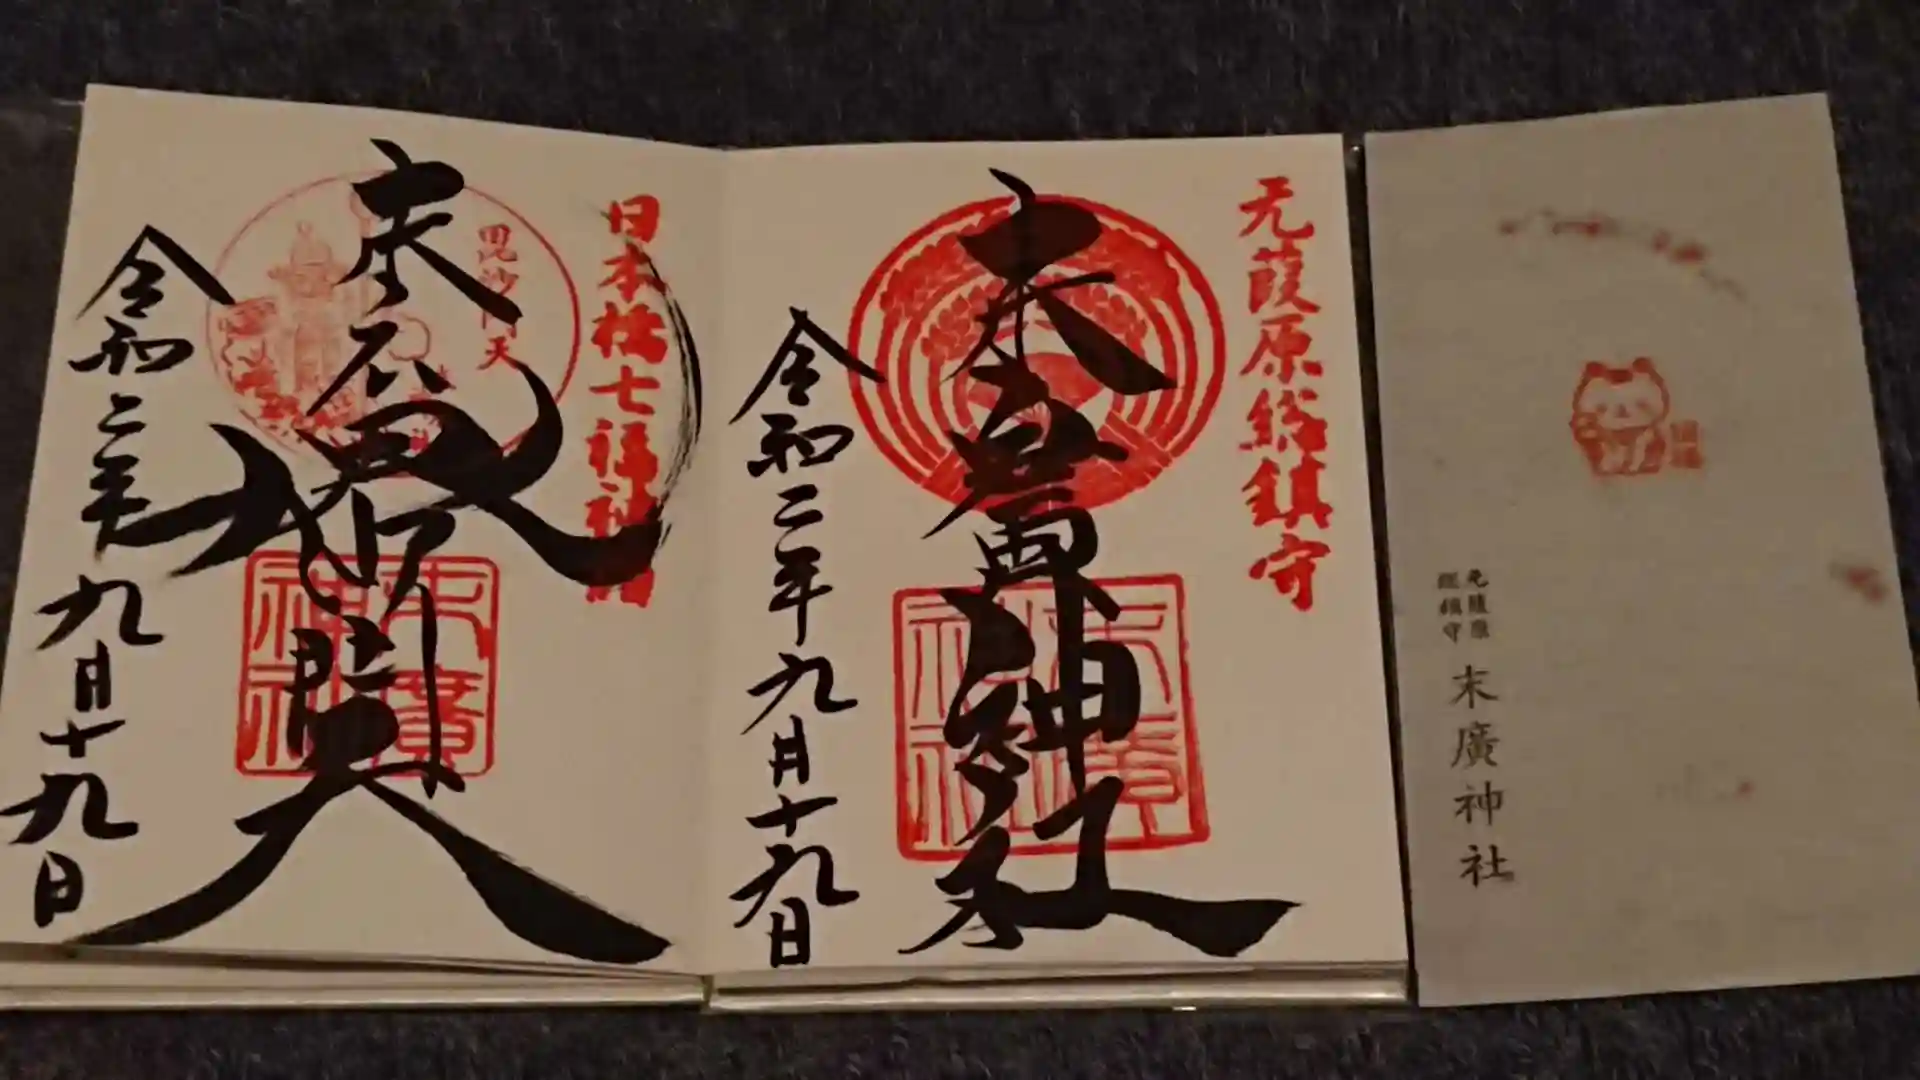 元葭原総鎮守
奉拝
末廣神社
末廣神社
令和二年九月十九日
日本橋七福神詣
毘沙門天
奉拝
毘沙門天
末廣神社
令和二年九月十九日
元葭原
総鎮守
末廣神社